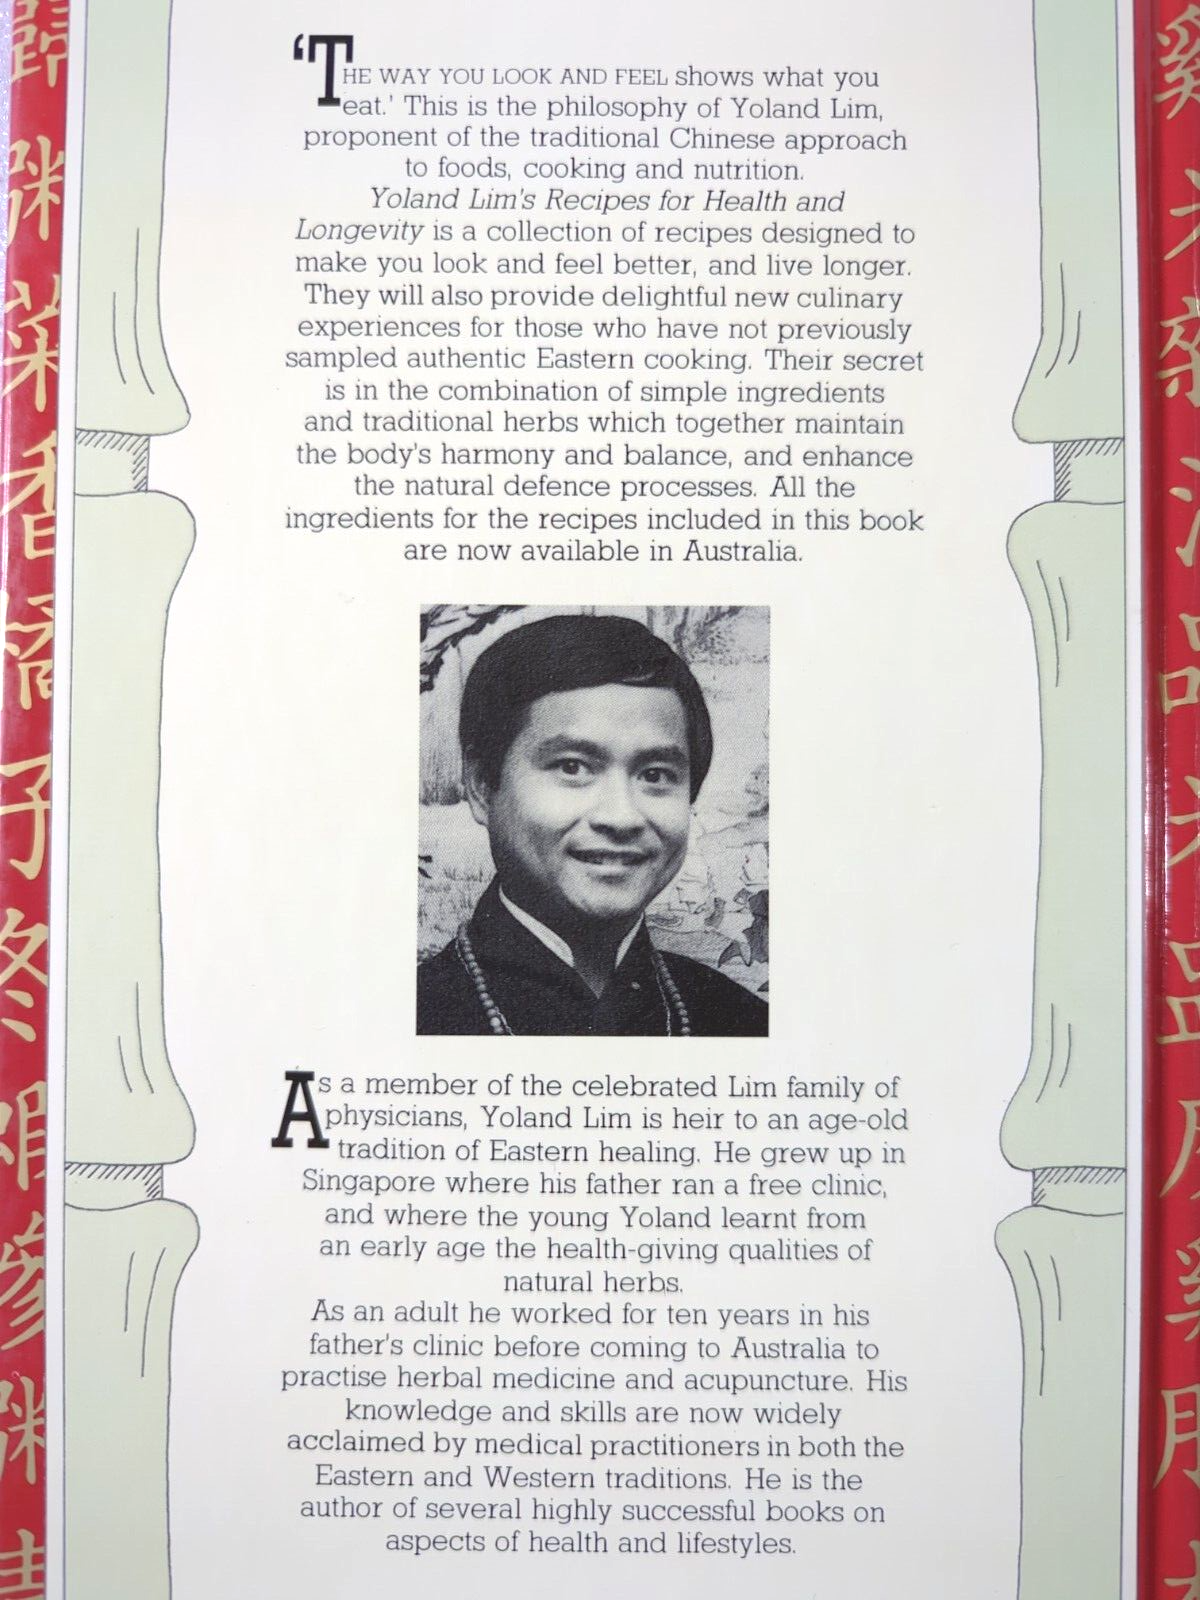 'THE WAY YOU LOOK AND FEEL shows what you
eat.' This is the philosophy of Yoland Lim,
proponent of the traditional Chinese approach
to foods, cooking and nutrition.
Yoland Lim's Recipes for Health and
Longevity is a collection of recipes designed to
make you look and feel better, and live longer.
They will also provide delightful new culinary
experiences for those who have not previously
sampled authentic Eastern cooking. Their secret
is in the combination of simple ingredients
and traditional herbs which together maintain
the body's harmony and balance, and enhance
the natural defence processes. All the
ingredients for the recipes included in this book
are now available in Australia.
As a member of the celebrated Lim family of
physicians, Yoland Lim is heir to an age-old
tradition of Eastern healing. He grew up in
Singapore where his father ran a free clinic,
and where the young Yoland learnt from
an early age the health-giving qualities of
natural herbs.
As an adult he worked for ten years in his
father's clinic before coming to Australia to
practise herbal medicine and acupuncture. His
knowledge and skills are now widely
acclaimed by medical practitioners in both the
Eastern and Western traditions. He is the
author of several highly successful books on
aspects of health and lifestyles.